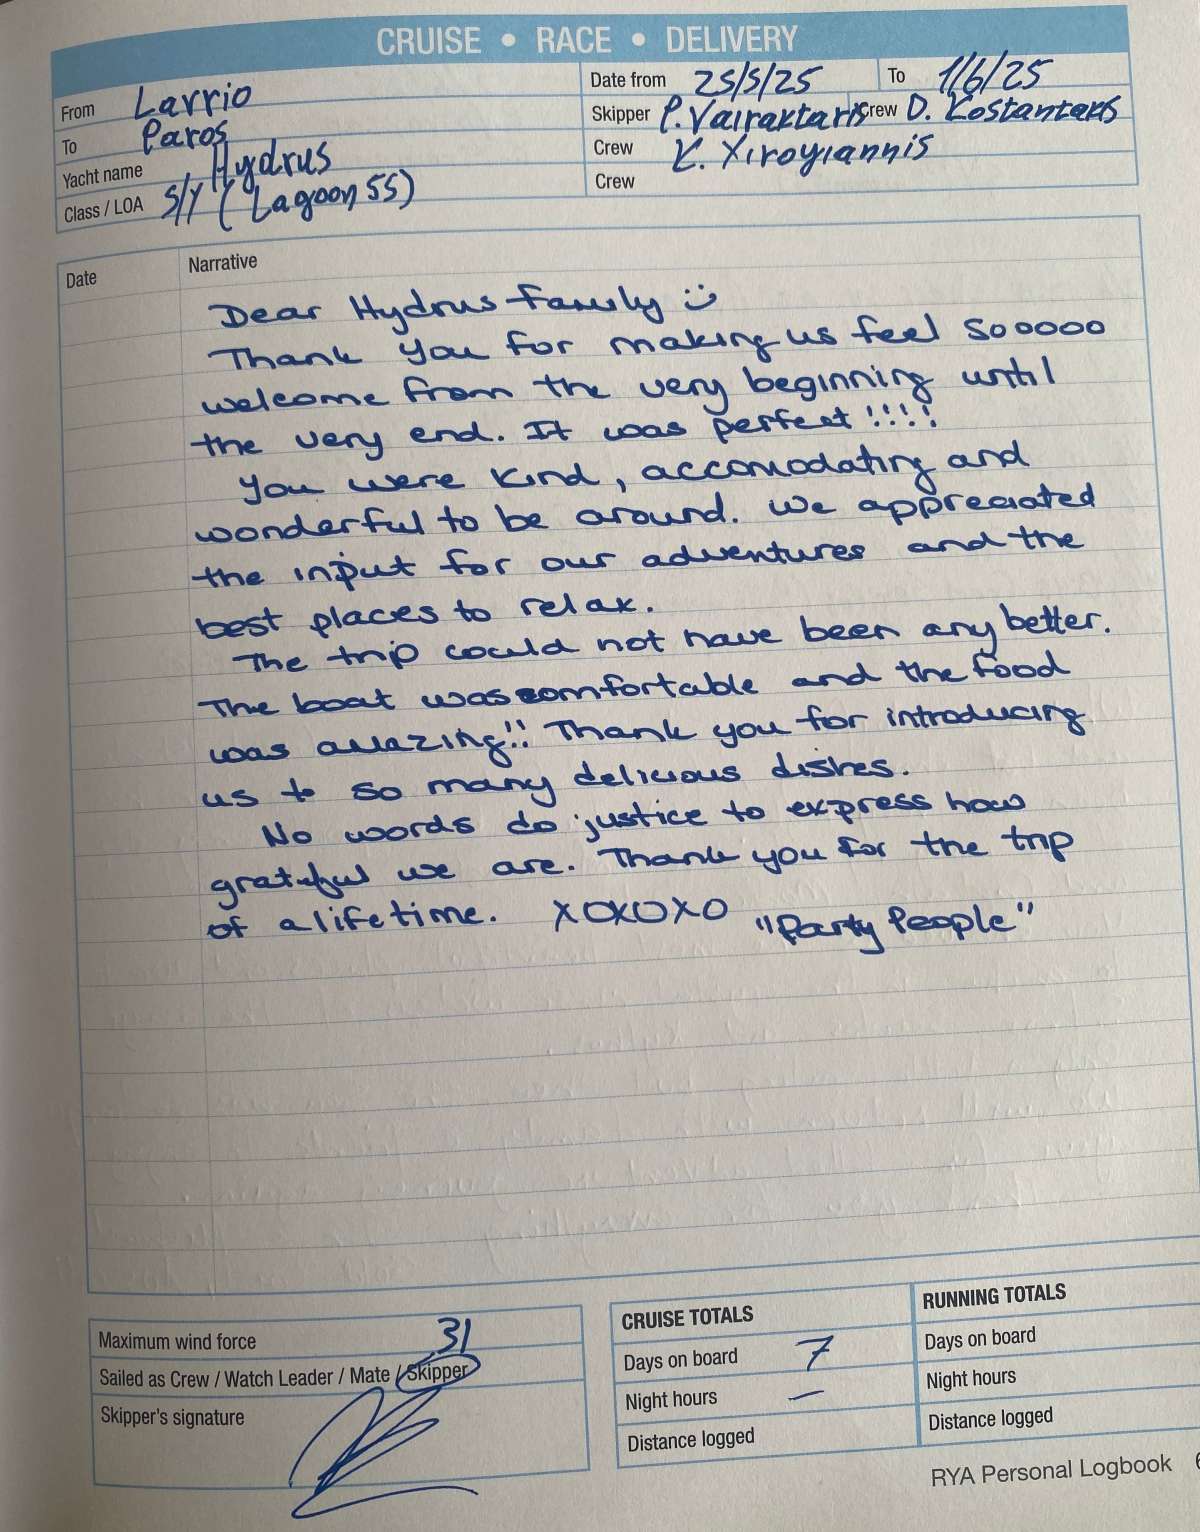 CRUISE • RACE • DELIVERY
From Lavrio
To Paros
Yacht name Hydrus
Class / LOA S/Y (Lagoon 55)
Date from 25/5/25 To 1/6/25
Skipper P. Vairaktaris Crew D. Kostantakis
Crew K. Xiroyiannis
Crew
Date Narrative
Dear Hydrus family :)
Thank you for making us feel sooooo
welcome from the very beginning until
the very end. It was perfect!!!!
You were kind, accomodating and
wonderful to be around. We appreciated
the input for our adventures and the
best places to relax.
The trip could not have been any better.
The boat was comfortable and the food
was amazing!! Thank you for introducing
us to so many delicious dishes.
No words do justice to express how
grateful we are. Thank you for the trip
of a lifetime. XOXOXO "Party People"
Maximum wind force 31
Sailed as Crew / Watch Leader / Mate / Skipper
Skipper's signature
CRUISE TOTALS
Days on board 7
Night hours —
Distance logged
RUNNING TOTALS
Days on board
Night hours
Distance logged
RYA Personal Logbook